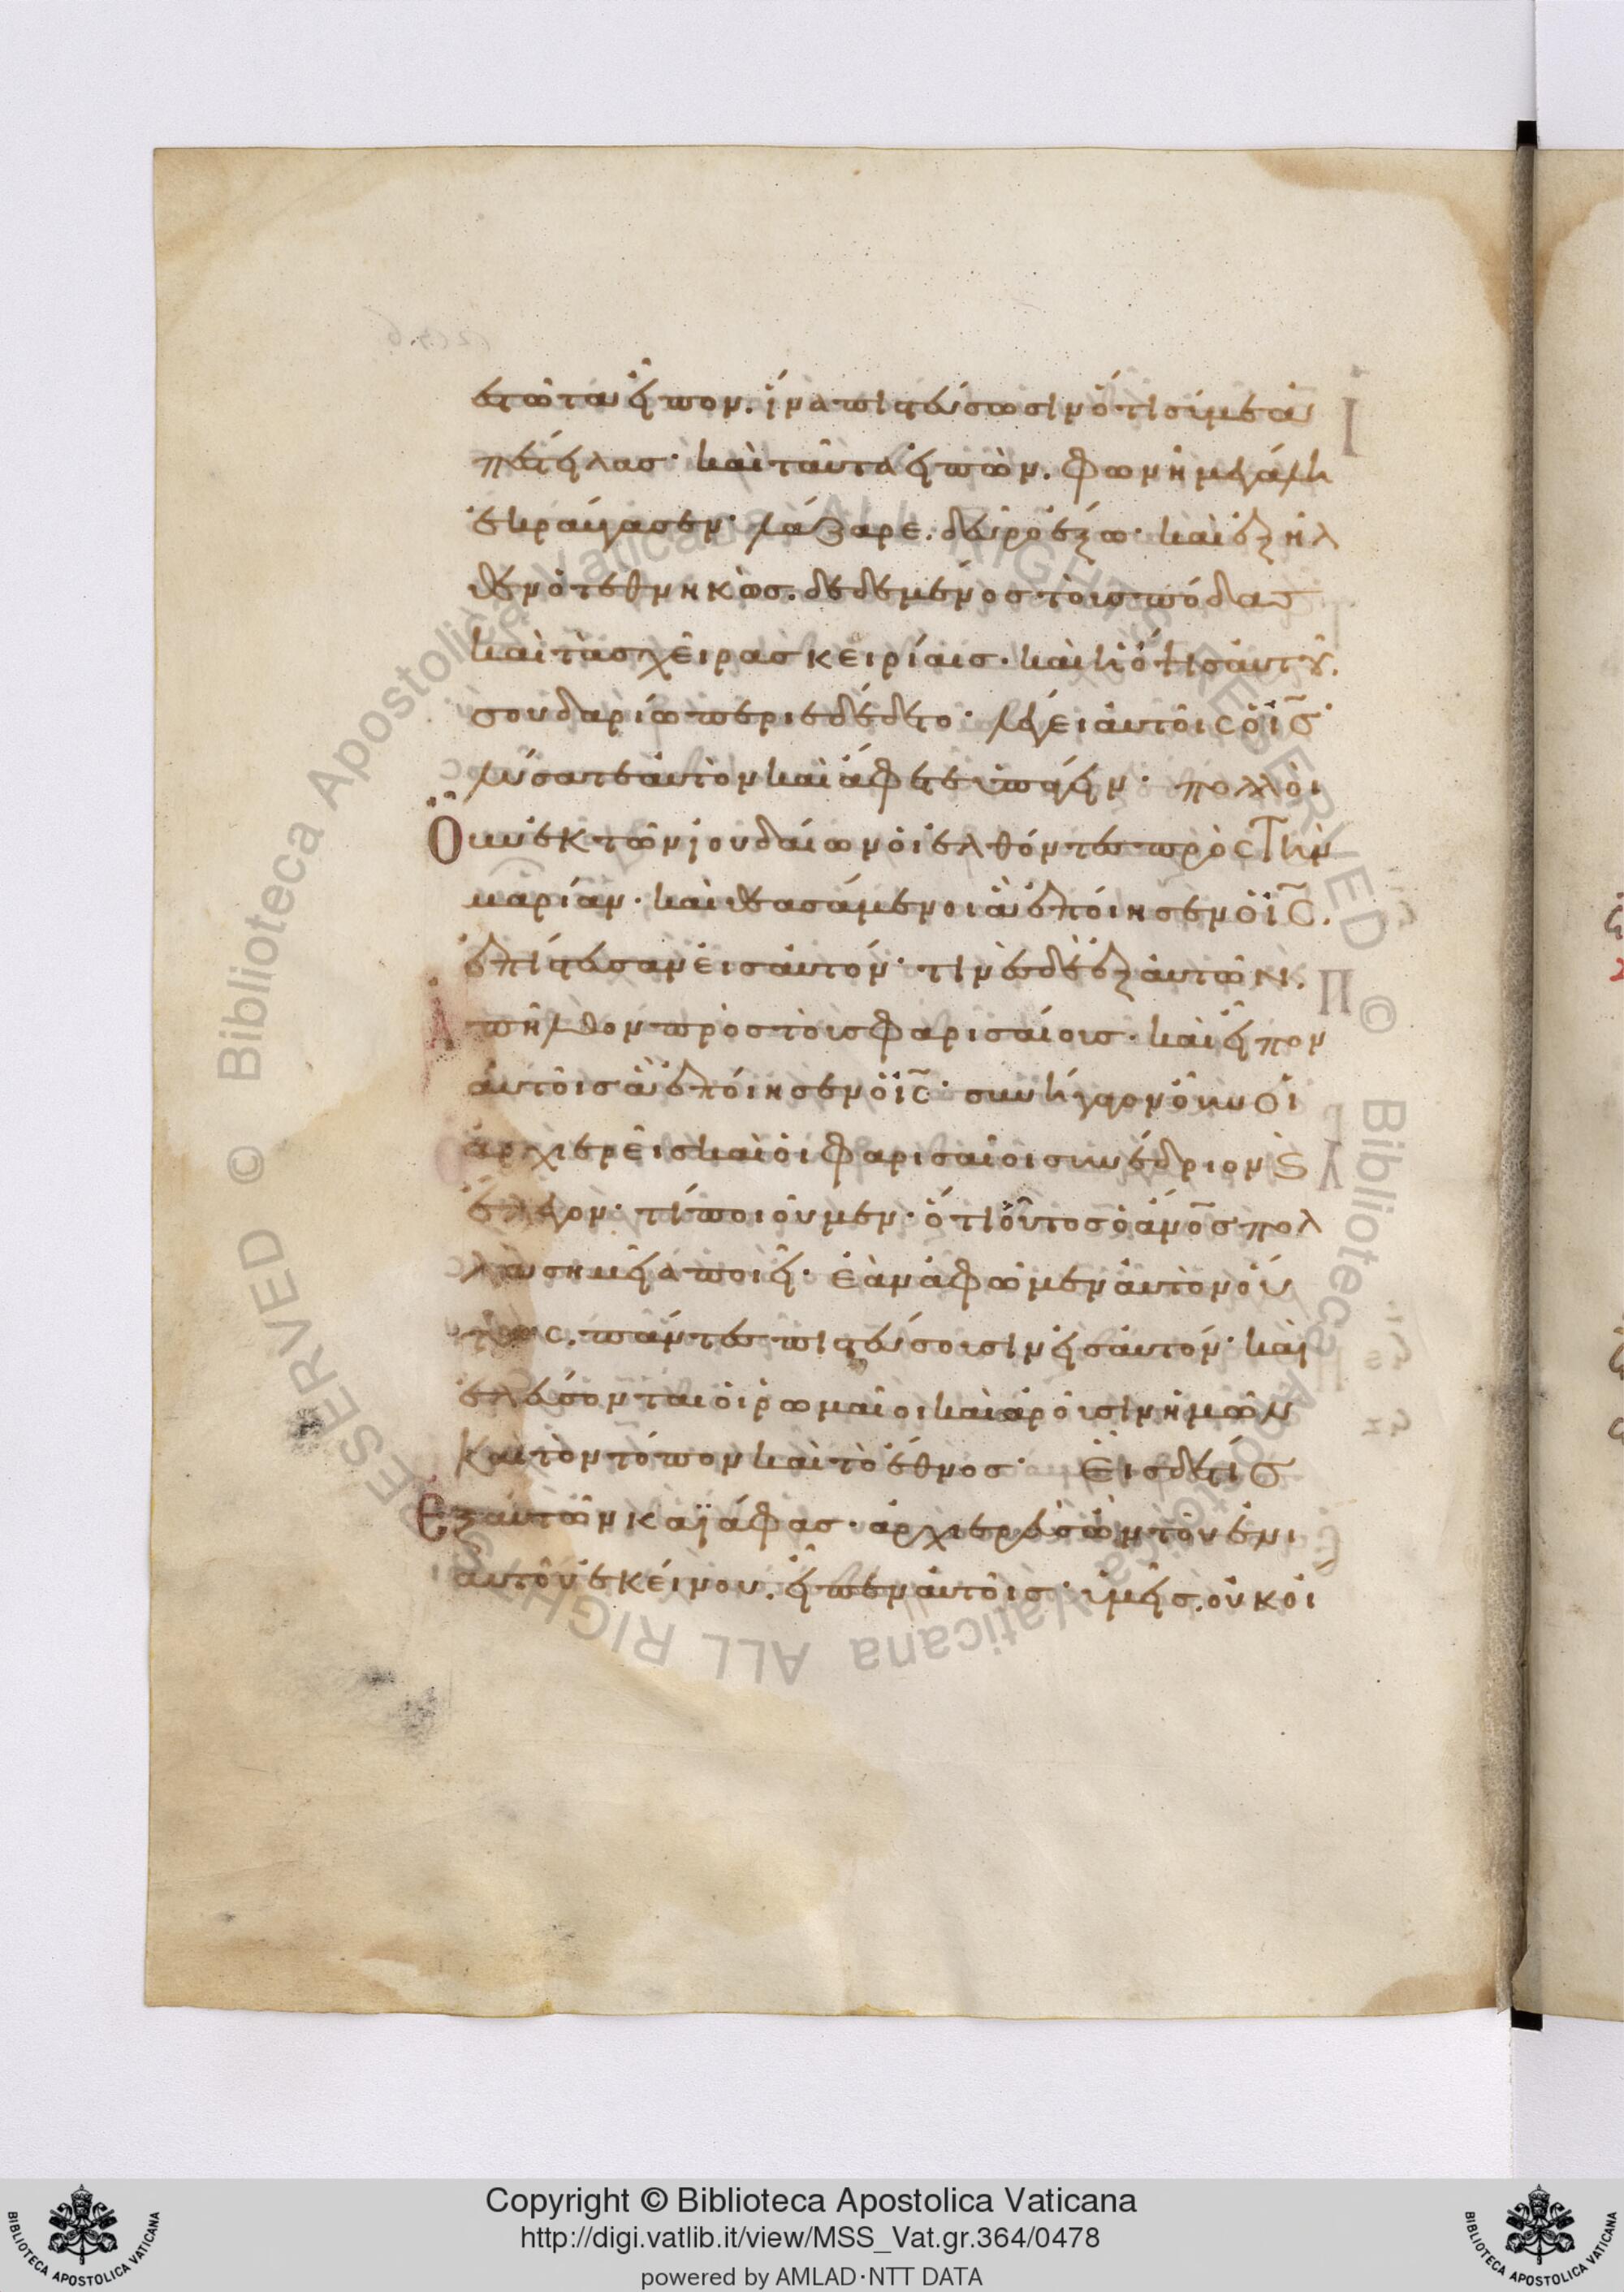 εστῶτα εἶπον. ἵνα πιστεύσωσιν ὅτι σύ με ἀ
πέστειλας· καὶ ταῦτα εἰπὼν. φωνῆ μεγάλη
ἐκραύγασεν· λάζαρε. δεῦρο ἔξω· καὶ ἐξῆλ
θεν ὁ τεθνηκὼς. δεδεμένος τοὺς πόδας
καὶ τὰς χεῖρας κειρίαις· καὶ ἡ ὄψις αὐτοῦ.
σουδαρίω περιεδέδετο· λέγει αὐτοῖς ὁ ι̅ς̅·
λύσατε αὐτὸν καὶ ἄφετε ὑπάγειν· πολλοὶ
Οὖν ἐκ τῶν ἰουδαίων οἱ ἐλθόντες πρὸς τὴν
μαρίαν· καὶ θεασάμενοι ἃ ἐποίησεν ὁ ι̅ς̅.
ἐπίστευσαν εἰς αὐτόν· τινὲς δὲ ἐξ αὐτῶν.
Ἀπῆλθον πρὸς τοὺς φαρισαίους· καὶ εἶπον
αὐτοῖς ἃ ἐποίησεν ὁ ι̅ς̅· συνήγαγον οὖν οἱ
ἀρχιερεῖς καὶ οἱ φαρισαῖοι συνέδριον ϗ
ἔλεγον· τί ποιοῦμεν· ὅτι οὗτος ὁ ἄνο̅ς πολ
λὰ σημεῖα ποιεῖ· ἐὰν ἀφῶμεν αὐτὸν οὕ
τως. πάντες πιστεύσουσιν εἰς αὐτόν· καὶ
ἐλεύσονται οἱ ῥωμαῖοι καὶ ἀροῦσιν ἡμῶν
καὶ τὸν τόπον καὶ τὸ ἔθνος· Εἷς δέ τις
Ἐξ αὐτῶν καϊάφας· ἀρχιερεὺς ὢν τοῦ ἐνι
αυτοῦ ἐκείνου. εἶπεν αὐτοῖς· ὑμεῖς. οὐκ οἴ
Copyright © Biblioteca Apostolica Vaticana
http://digi.vatlib.it/view/MSS_Vat.gr.364/0478
powered by AMLAD·NTT DATA
BIBLIOTECA APOSTOLICA VATICANA
BIBLIOTECA APOSTOLICA VATICANA
© Biblioteca Apostolica Vaticana ALL RIGHTS RESERVED © Biblioteca Apostolica Vaticana ALL RIGHTS RESERVED